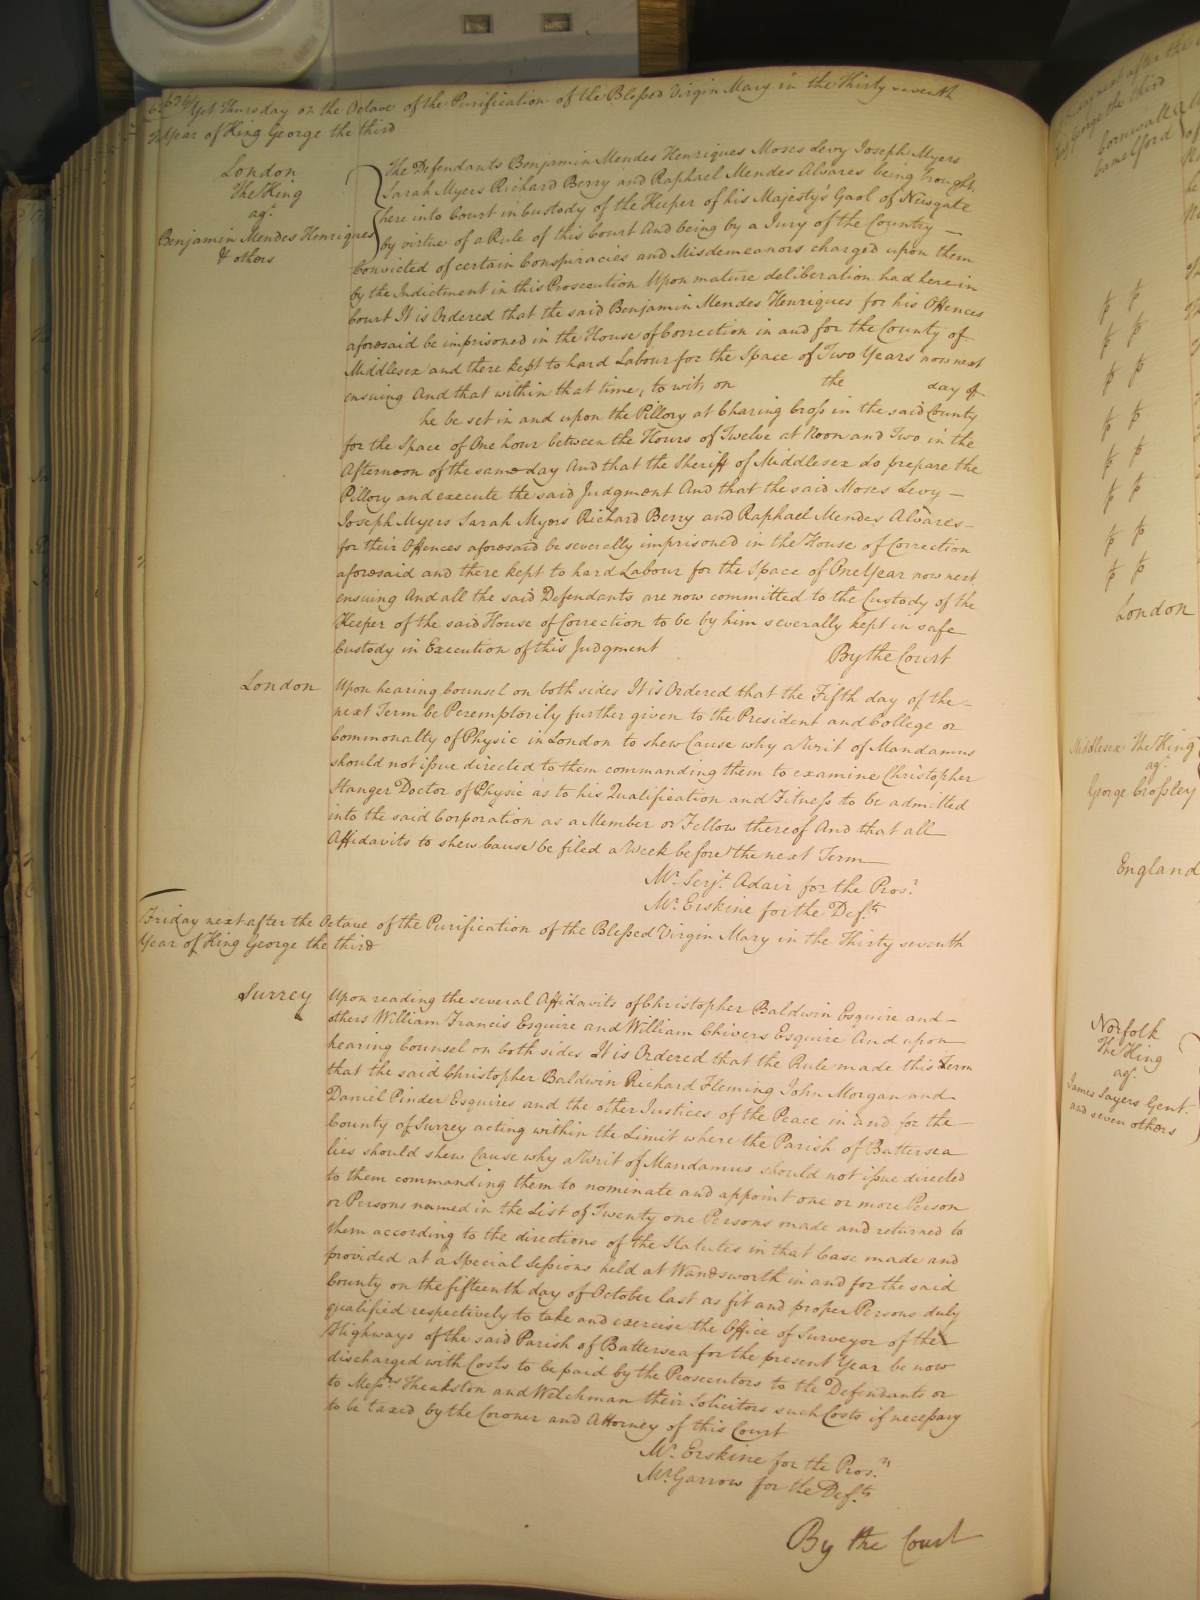 624 Yet Thursday on the Octave of the Purification of the Blessed Virgin Mary in the Thirty seventh
Year of King George the third
London
The King
agt.
Benjamin Mendes Henriques
& others
The Defendants Benjamin Mendes Henriques Moses Levy Joseph Myers
Sarah Myers Richard Berry and Raphael Mendes Alvares being brought
here into Court in Custody of the Keeper of his Majesty's Gaol of Newgate
by virtue of a Rule of this Court And being by a Jury of the Country —
Convicted of certain Conspiracies and Misdemeanors charged upon them
by the Indictment in this Prosecution Upon mature deliberation had here in
Court It is Ordered that the said Benjamin Mendes Henriques for his Offences
aforesaid be imprisoned in the House of Correction in and for the County of
Middlesex and there kept to hard Labour for the Space of Two Years now next
ensuing And that within that time, to wit, on the day of
he be set in and upon the Pillory at Charing Cross in the said County
for the Space of One hour between the Hours of Twelve at Noon and Two in the
Afternoon of the same day And that the Sheriff of Middlesex do prepare the
Pillory and execute the said Judgment And that the said Moses Levy —
Joseph Myers Sarah Myers Richard Berry and Raphael Mendes Alvares —
for their Offences aforesaid be severally imprisoned in the House of Correction
aforesaid and there kept to hard Labour for the Space of One Year now next
ensuing And all the said Defendants are now committed to the Custody of the
Keeper of the said House of Correction to be by him severally kept in safe
Custody in Execution of this Judgment
By the Court
London
Upon hearing Counsel on both sides It is Ordered that the Fifth day of the —
next Term be Peremptorily further given to the President and College or
Commonalty of Physic in London to shew Cause why a Writ of Mandamus
should not issue directed to them commanding them to examine Christopher
Stanger Doctor of Physic as to his Qualification and Fitness to be admitted
into the said Corporation as a Member or Fellow thereof And that all
Affidavits to shew Cause be filed a Week before the next Term
Mr. Serjt. Adair for the Pros.r
Mr. Erskine for the Def.ts
Friday next after the Octave of the Purification of the Blessed Virgin Mary in the Thirty seventh
Year of King George the third
Surrey
Upon reading the several Affidavits of Christopher Baldwin Esquire and —
others William Francis Esquire and William Chivers Esquire And upon
hearing Counsel on both sides It is Ordered that the Rule made this Term
that the said Christopher Baldwin Richard Fleming John Morgan and
Daniel Pinder Esquires and the other Justices of the Peace in and for the —
County of Surrey acting within the Limit where the Parish of Battersea
lies should shew Cause why a Writ of Mandamus should not issue directed
to them commanding them to nominate and appoint one or more Person
or Persons named in the List of Twenty one Persons made and returned to
them according to the directions of the Statutes in that Case made and
provided at a Special Sessions held at Wandsworth in and for the said
County on the fifteenth day of October last as fit and proper Persons duly
qualified respectively to take and exercise the Office of Surveyor of the
Highways of the said Parish of Battersea for the present Year be now
discharged with Costs to be paid by the Prosecutors to the Defendants or
to Messrs. Theakston and Welchman their Solicitors such Costs if necessary
to be taxed by the Coroner and Attorney of this Court
Mr. Erskine for the Pros.rs
Mr. Garrow for the Def.ts
By the Court
next after the
George the third
Cornwall
Camelford
London
Middlesex The King
agt.
George Crossley
England
Norfolk
The King
agt.
James Sayers Gent.
and seven others